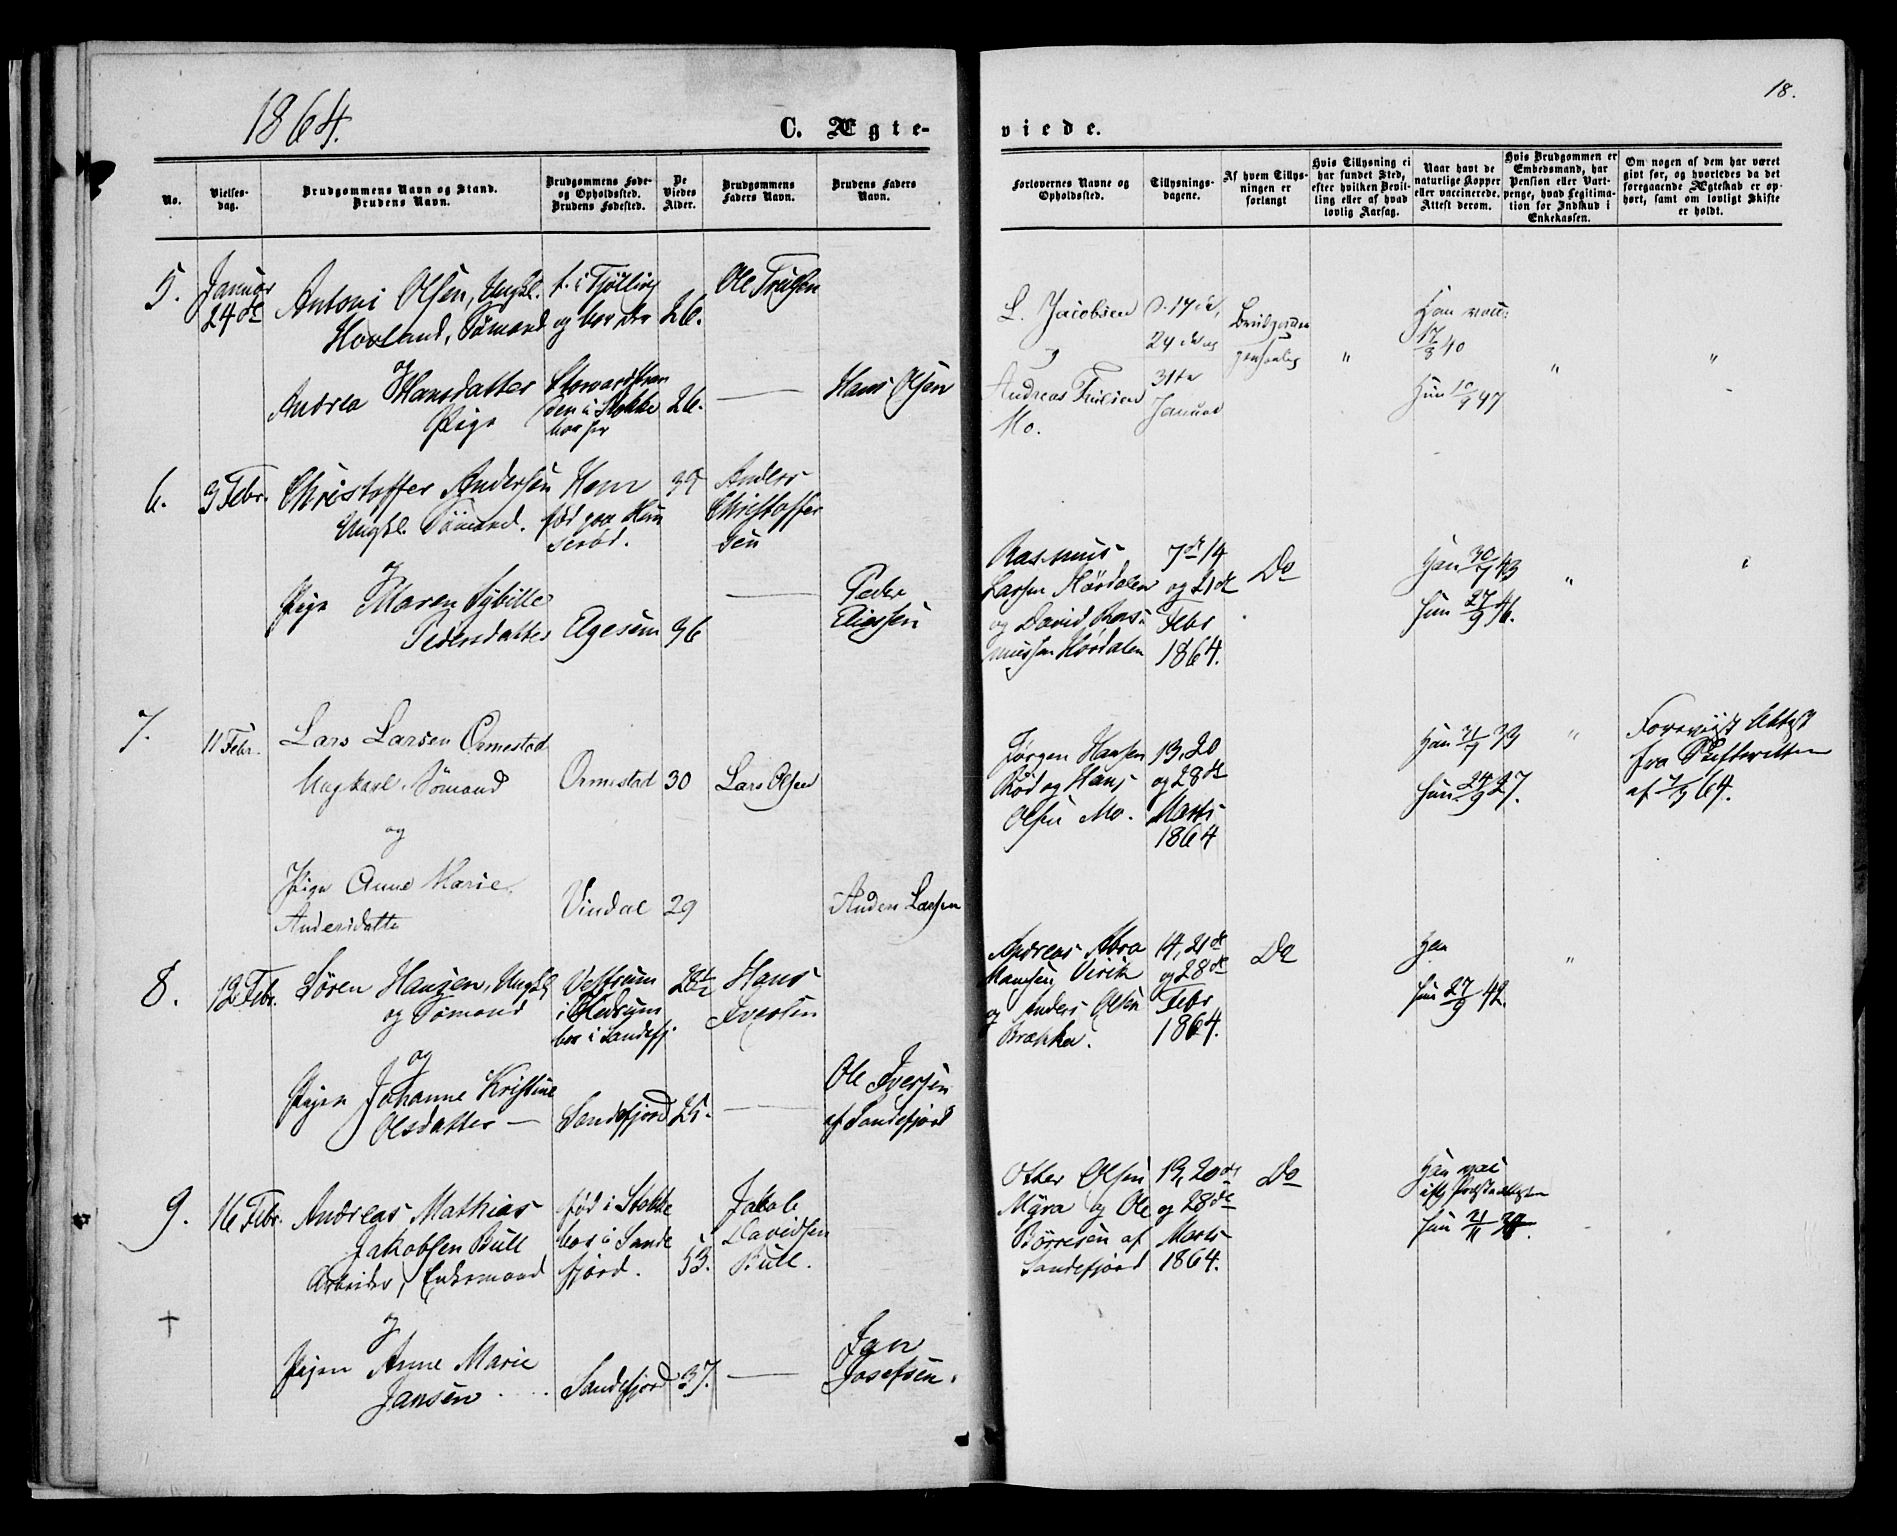 1864.
18.
C. Ægte-
viede.
No.
Vielses-
dag.
Brudgommens Navn og Stand.
Brudens Navn.
Brudgommens Føde-
og Opholdssted.
Brudens Fødested.
De
Viedes
Alder.
Brudgommens
Faders Navn.
Brudens Faders
Navn.
Forlovernes Navne og
Opholdssted.
Tillysnings-
dagene.
Af hvem Tillys-
ningen er
forlangt
Hvis Tillysning ei
har fundet Sted,
efter hvilken Bevil-
ling eller af hvad
lovlig Aarsag.
Naar havt de
naturlige Kopper
eller vaccinerede.
Attest derom.
Hvis Brudgommen er
Embedsmand, har
Pension eller Vart-
penge, hvad Legitima-
tion for Indskud i
Enkekassen.
Om nogen af dem har været
givt før, og hvorledes da det
foregaaende Ægteskab er op-
hørt, samt om lovligt Skifte
er holdt.
5.
Januar
24de
Antoni Olsen, Ungkl.
Hovland, Sømand
f. i Tjølling
og bor der
26.
Ole
og
Andrea Hansdatter
Pige
i Stokke
bor her
26.
Hans Olsen
L. Jacobsen
og
Andreas
Mo.
17de,
24de og
31te
Januar
"
Han vacc.
17/8 40
Hun 10/9 47
"
"
6.
3 Febr.
Christoffer Andersen
Ungkl. Sømand.
og
Pige Maren Sybille
Pedersdatter
Hem
født paa
Elgesem
36
Anders
Christoffer
sen
Peder
Eliassen
Rasmus
Larsen Hørdalen
og David Ras-
mussen Hørdalen
7de 14
og 21de
Febr
1864.
Do
Han 30/7 43
Hun 27/9 46.
"
"
7.
11 Febr.
Lars Larsen Ormestad
Ungkarl. Sømand
og
Pige Anne Marie
Andersdatter
Ormestad
30
Lars Olsen
Vindal
29
Anders Larsen
Jørgen Hansen
Rød og Hans
Olsen Mo.
13, 20
og 28de
Marts
1864
Han 21/7 39
Hun 24/9 27.
"
Foreviist Attest
fra Skifteretten
af 7/3 64.
8.
12 Febr.
Søren Hansen, Ungkl,
og Sømand
og
Pigen Johanne Kristine
Olsdatter
i Hedrum
bor i Sandefj.
28½
Hans
Iversen
Sandefjord
25.
Ole Iversen
af Sandefjord
Andreas Abra
hamsen Virik
og Anders Olsen
Brekka.
14, 21de
og 28de
Febr
1864.
Do
Han
Hun 27/9 42.
"
9.
16 Febr.
Andreas Mathias
Jakobsen Bull
Arbeider, Enkemand
og
Pigen Anne Marie
Jansen
født i Stokke
bor i Sande
fjord.
53.
Jakob
Davidsen
Bull.
†
Sandefjord
37.
Jan
Josefsen.
Otter Olsen
Myra og Ole
Børresen af
Sandefjord
13, 20de
og 28de
Marts
1864.
Do
Han vac
iflg. Præsteattesten
Hun 21/11